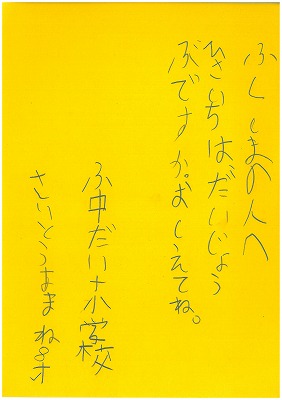 ふくしまの人へ
ひさいちはだいじょう
ぶですか。おしえてね。
ふ中だい十小学校
さいとうままね8才